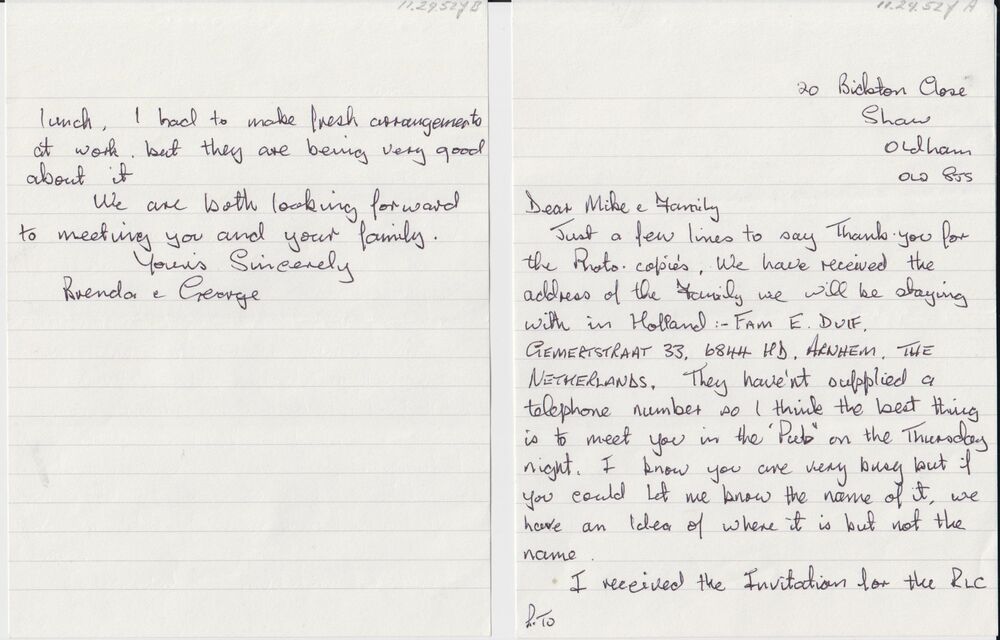 11.24.527 A
20 Bickton Close
Shaw
Oldham
Dear Mike e Family
Just a few lines to say Thank-you for
the Photo-copies, We have received the
address of the Family we will be staying
with in Holland :- FAM E. DUIF,
GEMERTSTRAAT 33, 6844 HD, ARNHEM, THE
NETHERLANDS, They have'nt supplied a
telephone number so I think the best thing
is to meet you in the "Pub" on the Thursday
night. I know you are very busy but if
you could let me know the name of it, we
have an Idea of where it is but not the
name.
I received the Invitation for the RLC
P.TO
11.24.527 B
lunch, I had to make fresh arrangements
at work. but they are being very good
about it
We are both looking forward
to meeting you and your family.
Yours Sincerely
Brenda e George